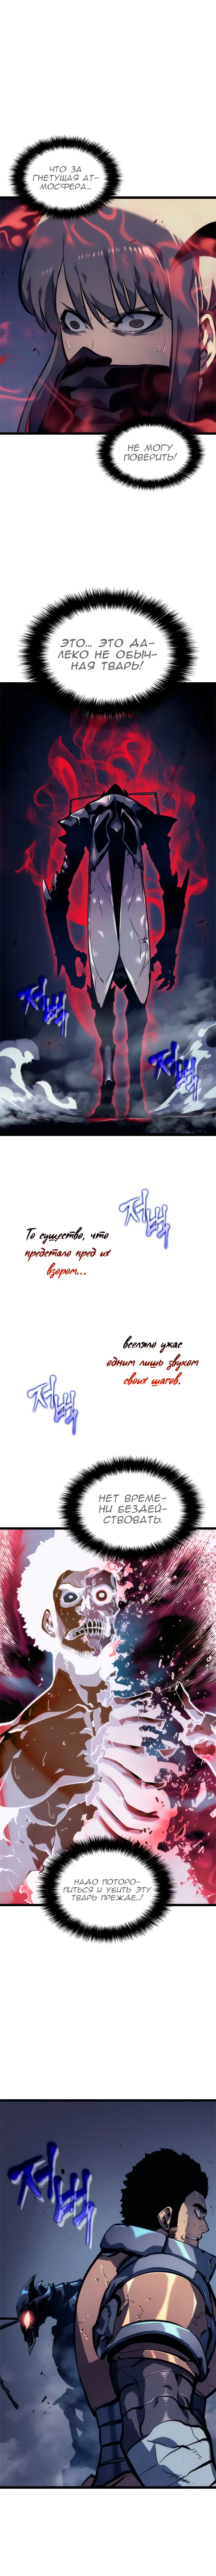 ЧТО ЗА
ГНЕТУЩАЯ АТ-
МОСФЕРА...
НЕ МОГУ
ПОВЕРИТЬ!
ЭТО... ЭТО ДА-
ЛЕКО НЕ ОБЫЧ-
НАЯ ТВАРЬ!
저벅
저벅
저벅
То существо, что
предстало пред их
взором...
вселяло ужас
одним лишь звуком
своих шагов.
저벅
НЕТ ВРЕМЕ-
НИ БЕЗДЕЙ-
СТВОВАТЬ.
НАДО ПОТОРО-
ПИТЬСЯ И УБИТЬ ЭТУ
ТВАРЬ ПРЕЖДЕ...!
저벅